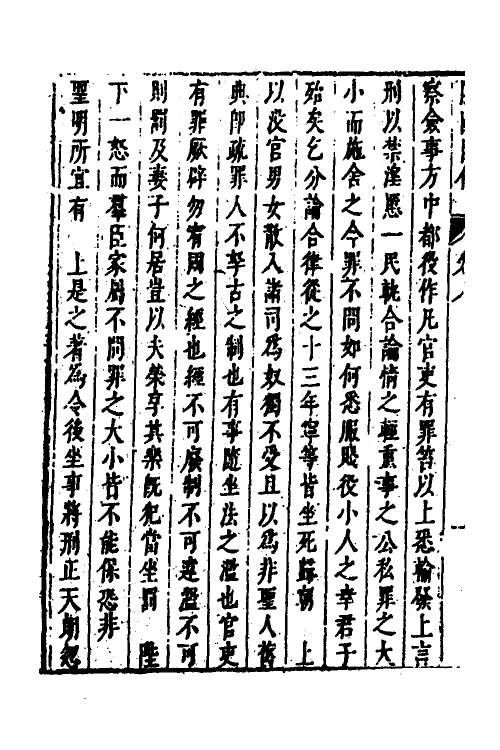 察僉事方中都役作凡官吏有罪笞以上悉輪發上言
刑以禁淫慝一民軌合論情之輕重事之公私罪之大
小而施舍之今罪不問如何悉服賤役小人之幸君子
殆矣乞分論合律從之十三年寧等皆坐死歸朝　上
以沒官男女散入諸司為奴獨不受且以為非聖人舊
典即疏罪人不孥古之制也有事隨坐法之濫也官吏
有罪厥辟勿宥周之經也經不可廢制不可違濫不可
則罰及妻子何居豈以夫榮享其樂既犯當坐罰　陛
下一怒而羣臣家屬不問罪之大小皆不能保恐非
聖明所宜有　上是之著為令後坐事將刑正天朗忽